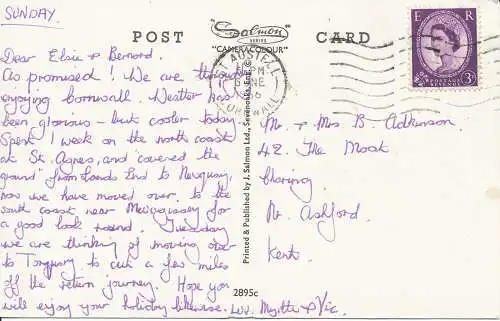 SUNDAY.
POST
Salmon
SERIES
"CAMERACOLOUR"
CARD
E R
POSTAGE
REVENUE
3D
AUSTELL
PM
CORNWALL
Dear Elsie & Bernard.
As promised! We are throughly
enjoying Cornwall. Weather has
been glorious - but cooler today.
Spent 1 week on the north coast
at St. Agnes, and "covered the
ground" from Lands End to Newquay,
now we have moved over to the
south coast near Mevagissey for
a good look round. Tuesday
we are thinking of moving over
to Torquay to cut a few miles
off the return journey. Hope you
will enjoy your holiday likewise. Luv. Myttle & Vic.
Printed & Published by J. Salmon Ltd., Sevenoaks, Eng. ©
2895c
Mr. & Mrs B. Adkinson
42 The Moat
Charing.
Nr. Ashford.
Kent.